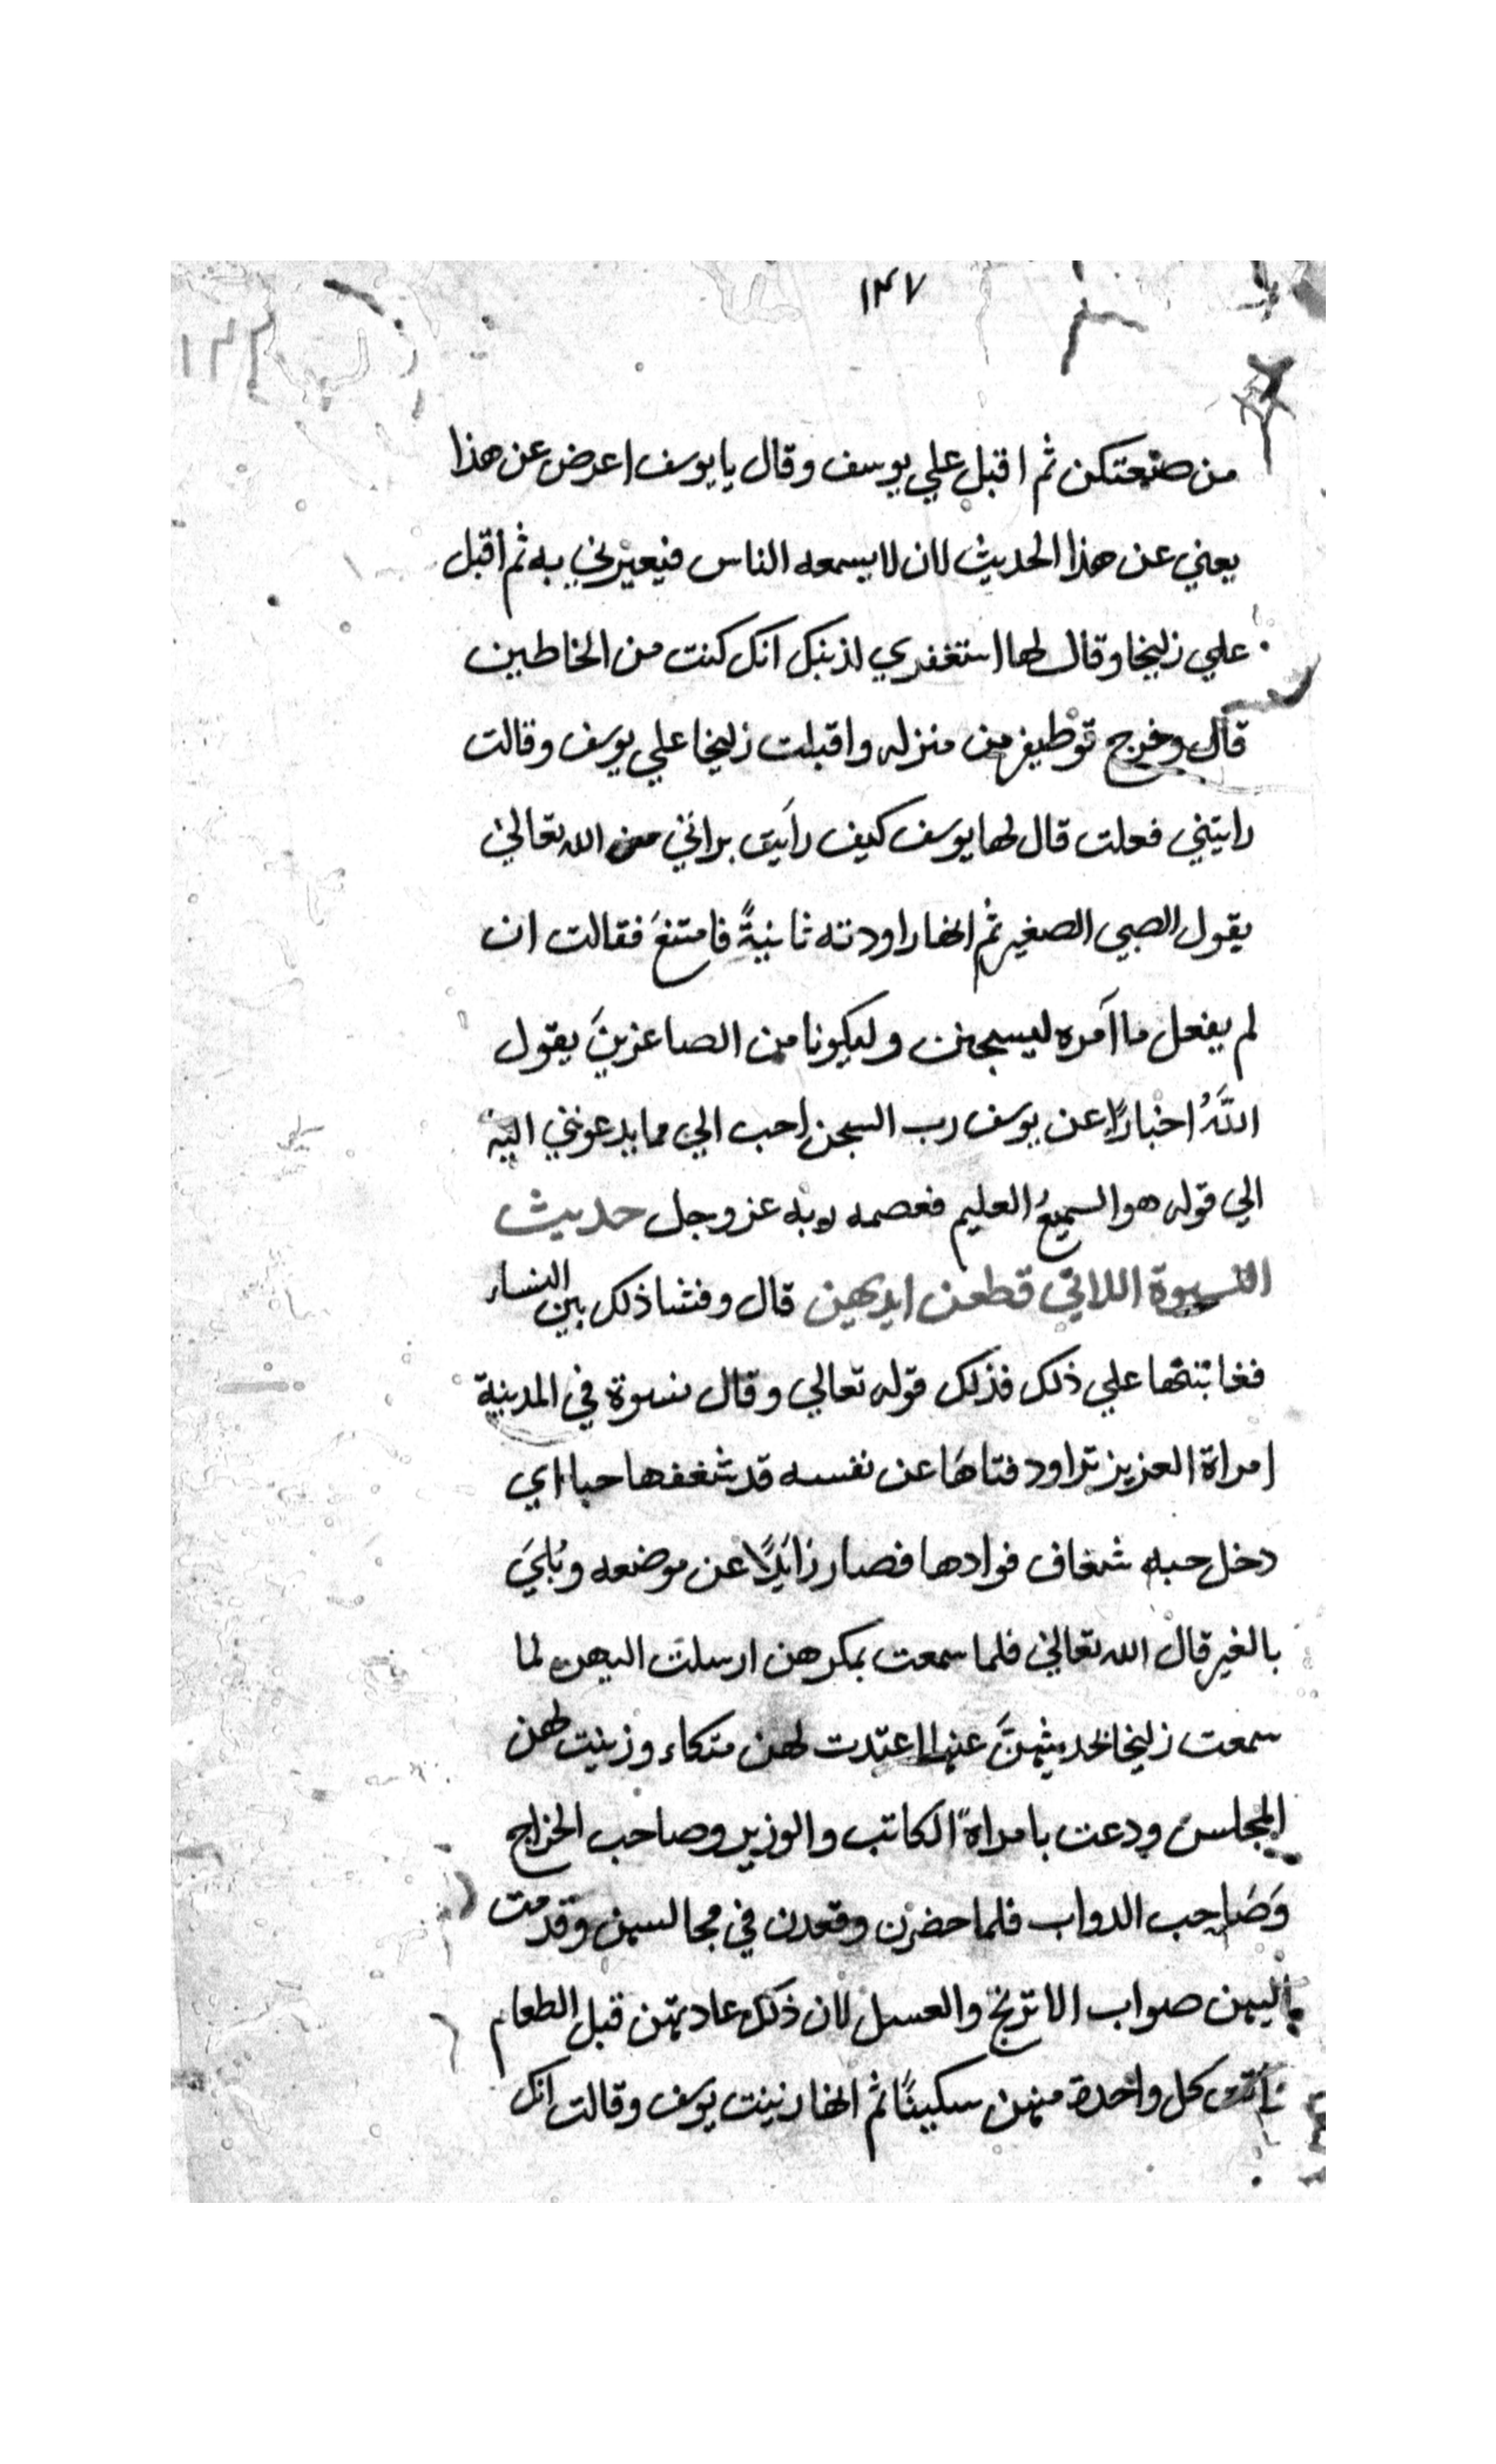 ١٣٧
من صنعتكن ثم اقبل علي يوسف وقال يا يوسف اعرض عن هذا
يعني عن هذا الحديث لان لا يسمعه الناس فيعيرني به ثم اقبل
علي زليخا وقال لها استغفري لذنبك انك كنت من الخاطين
قال وخرج قوطيفر من منزله واقبلت زليخا علي يوسف وقالت
رايتني فعلت قال لها يوسف كيف رأيت براتي من الله تعالي
يقول الصبي الصغير ثم انها راودته ثانيةً فامتنعَ فقالت ان
لم يفعل ما اَمره ليسجنن وليكونا من الصاغرينَ يقول
اللَّهُ اخبارًا عن يوسف رب السجن احب الي مما يدعونني اليه
الي قوله هو السميعُ العليم فعصمه ربه عز وجل حديث
النسوة اللاتي قطعن ايديهن قال وفشا ذلك بين النساء
فعاتبتها علي ذلك فذلك قوله تعالي وقال نسوة في المدينة
امراة العزيز تراود فتاهَا عن نفسه قد شغفها حبا اي
دخل حبه شغاف فوادها فصار زائلًا عن موضعه وبُليَ
بالغير قال الله تعالي فلما سمعت بمكرهن ارسلت اليهن لما
سمعت زليخا لحديثهنَّ عنها اعتدت لهن متكاء وزينت لهن
المجلس ودعت بامراة الكاتب والوزير وصاحب الخراج
وَصَاحب الدواب فلما حضرن وقعدن في مجالسهن وقدمت
اليهن صواب الاترنج والعسل لان ذلك عادتهن قبل الطعام
كل واحدة منهن سكينًا ثم انها زينت يوسف وقالت انك